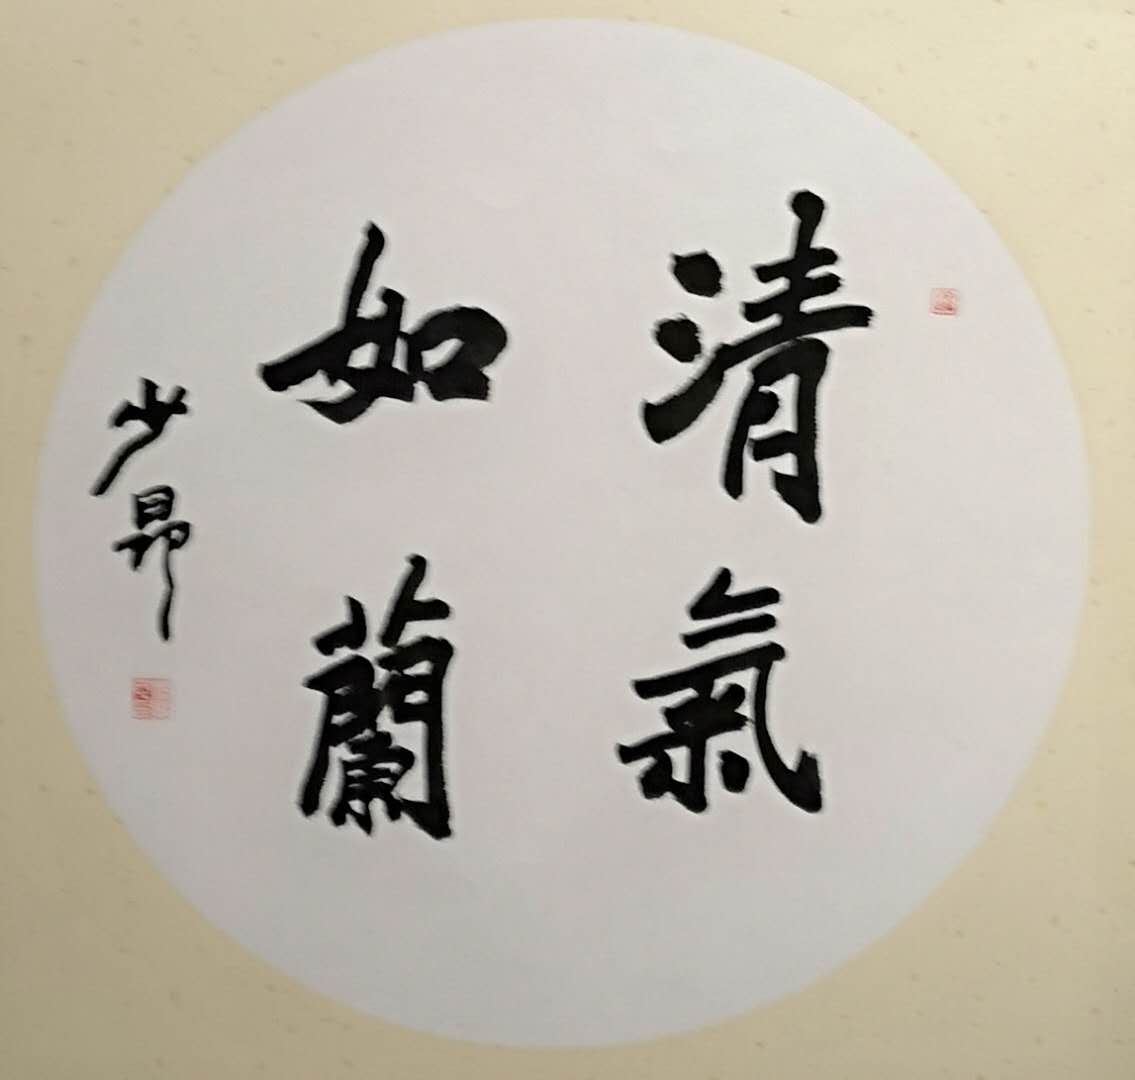 清氣
如蘭
少昂